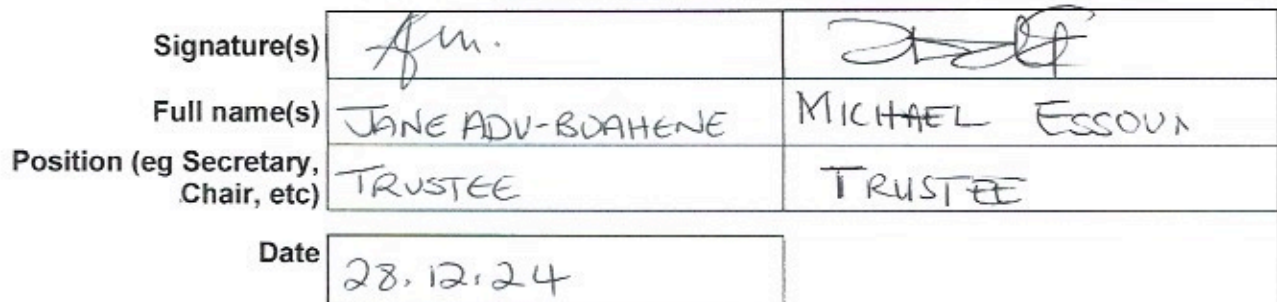 Signature(s)
Full name(s) JANE ADU-BOAHENE MICHAEL ESSOUN
Position (eg Secretary, TRUSTEE TRUSTEE
Chair, etc)
Date 28.12.24